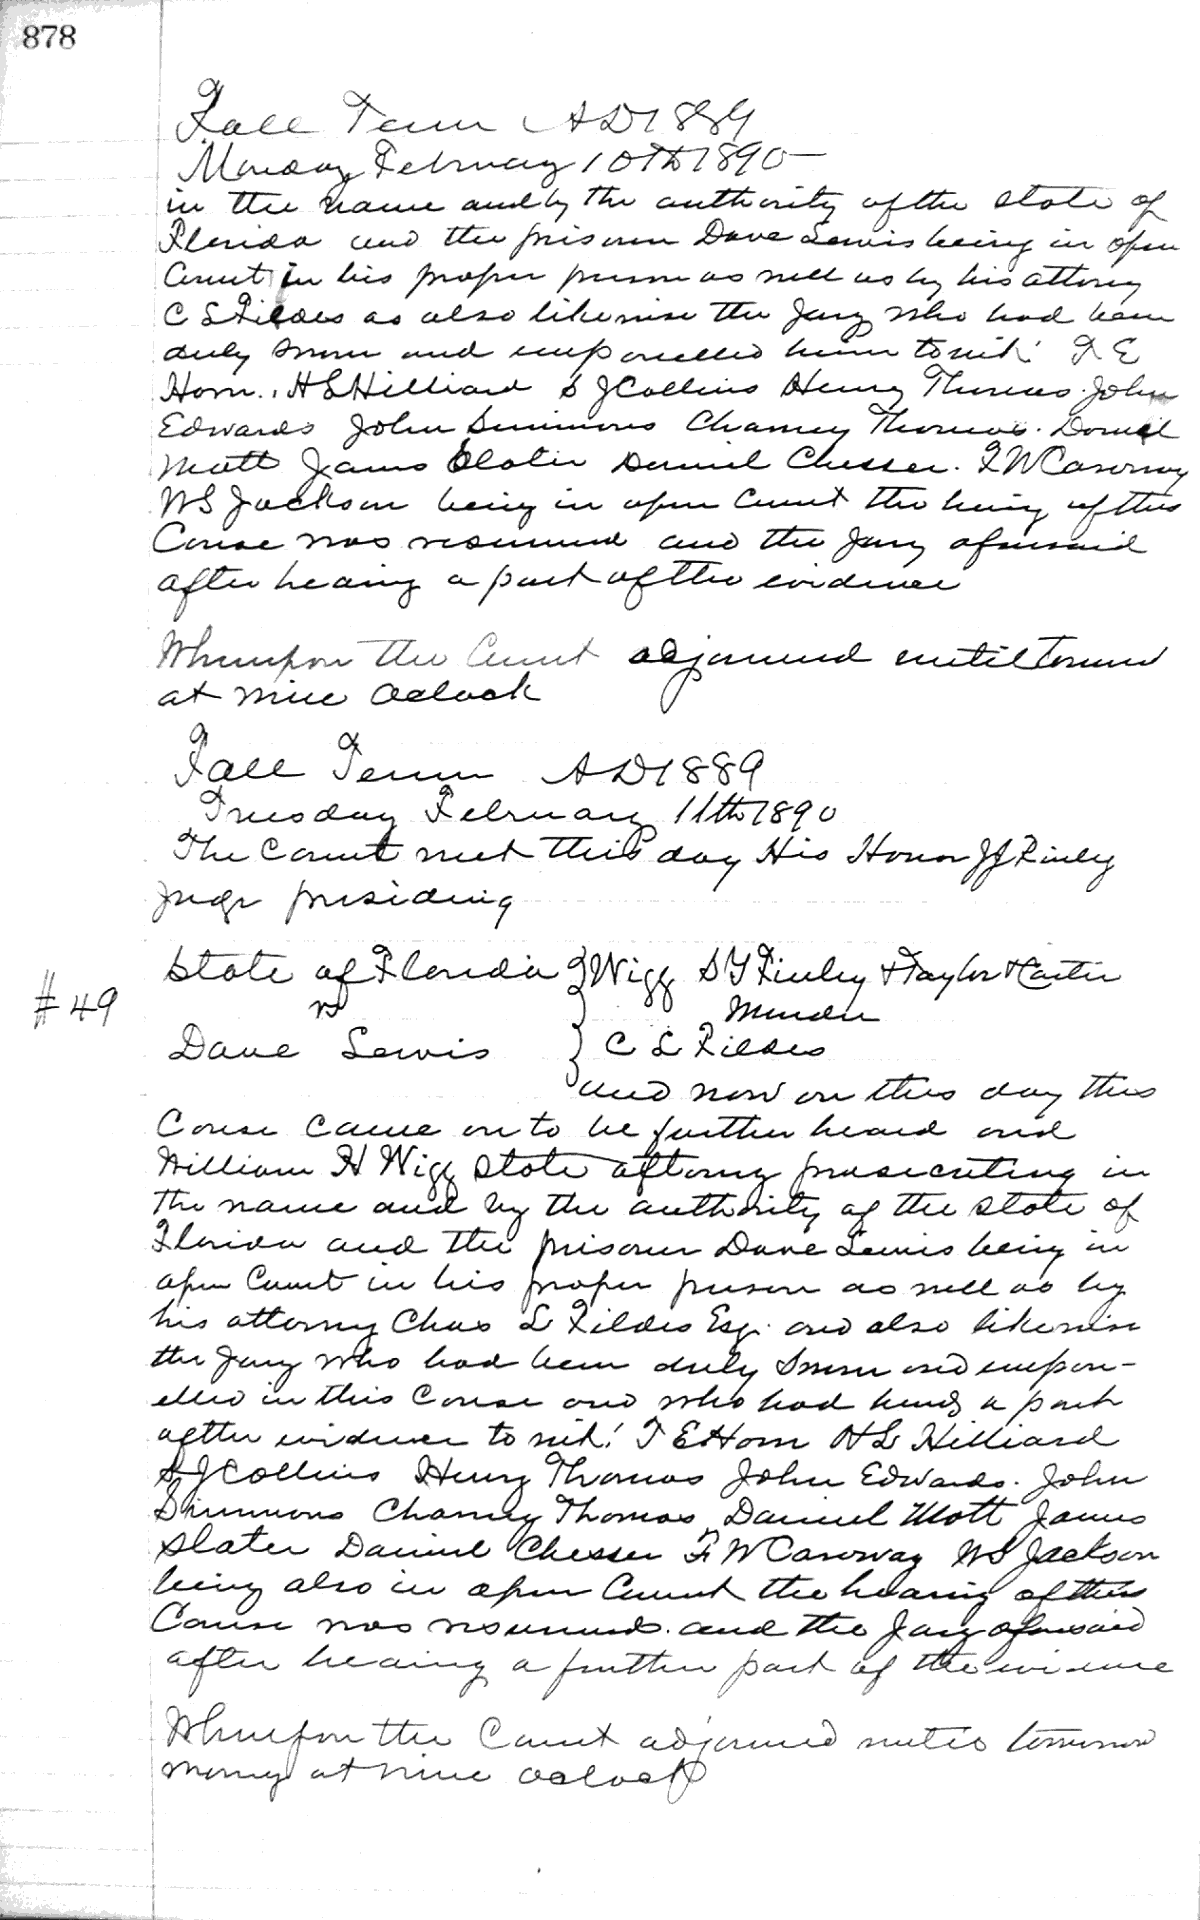 878
Fall Term AD 1889
Monday February 10th 1890
in the name and by the authority of the State of
Florida and the prisoner Dave Lewis being in open
Court in his proper person as well as by his attorney
C L Fildes as also likewise the Jury who had been
duly sworn and empanelled herein towit: T E
Horn. H L Hilliard S J Collins Henry Thomas. John
Edwards John Simmons Charney Thomas. Daniel
Mott James Slater Daniel Chesser. F W Caroway
W S Jackson being in open Court the hearing of this
Cause was resumed and the Jury aforesaid
after hearing a part of the evidence
Whereupon the Court adjourned until
at nine Oclock
Fall Term AD 1889
Tuesday February 11th 1890
The Court met this day His Honor J J Finley
Judge presiding
State of Florida } Wigg S Y Finley & Taylor & Carter
#49
vs
Murder
Dave Lewis } C L Fildes
and now on this day this
Cause came on to be further heard and
William H Wigg State attorney prosecuting in
the name and by the authority of the State of
Florida and the prisoner Dave Lewis being in
open Court in his proper person as well as by
his attorney Chas L Fildes Esq. and also likewise
the Jury who had been duly sworn and empan-
elled in this Cause and who had heard a part
of the evidence to wit: T E Horn H L Hilliard
S J Collins Henry Thomas John Edwards. John
Simmons Charney Thomas Daniel Mott James
Slater Daniel Chesser F W Caroway W S Jackson
being also in open Court the hearing of this
Cause was resumed. and the Jury aforesaid
after hearing a further part of the evidence
Whereupon the Court adjourned until tomorrow
morning at nine oclock